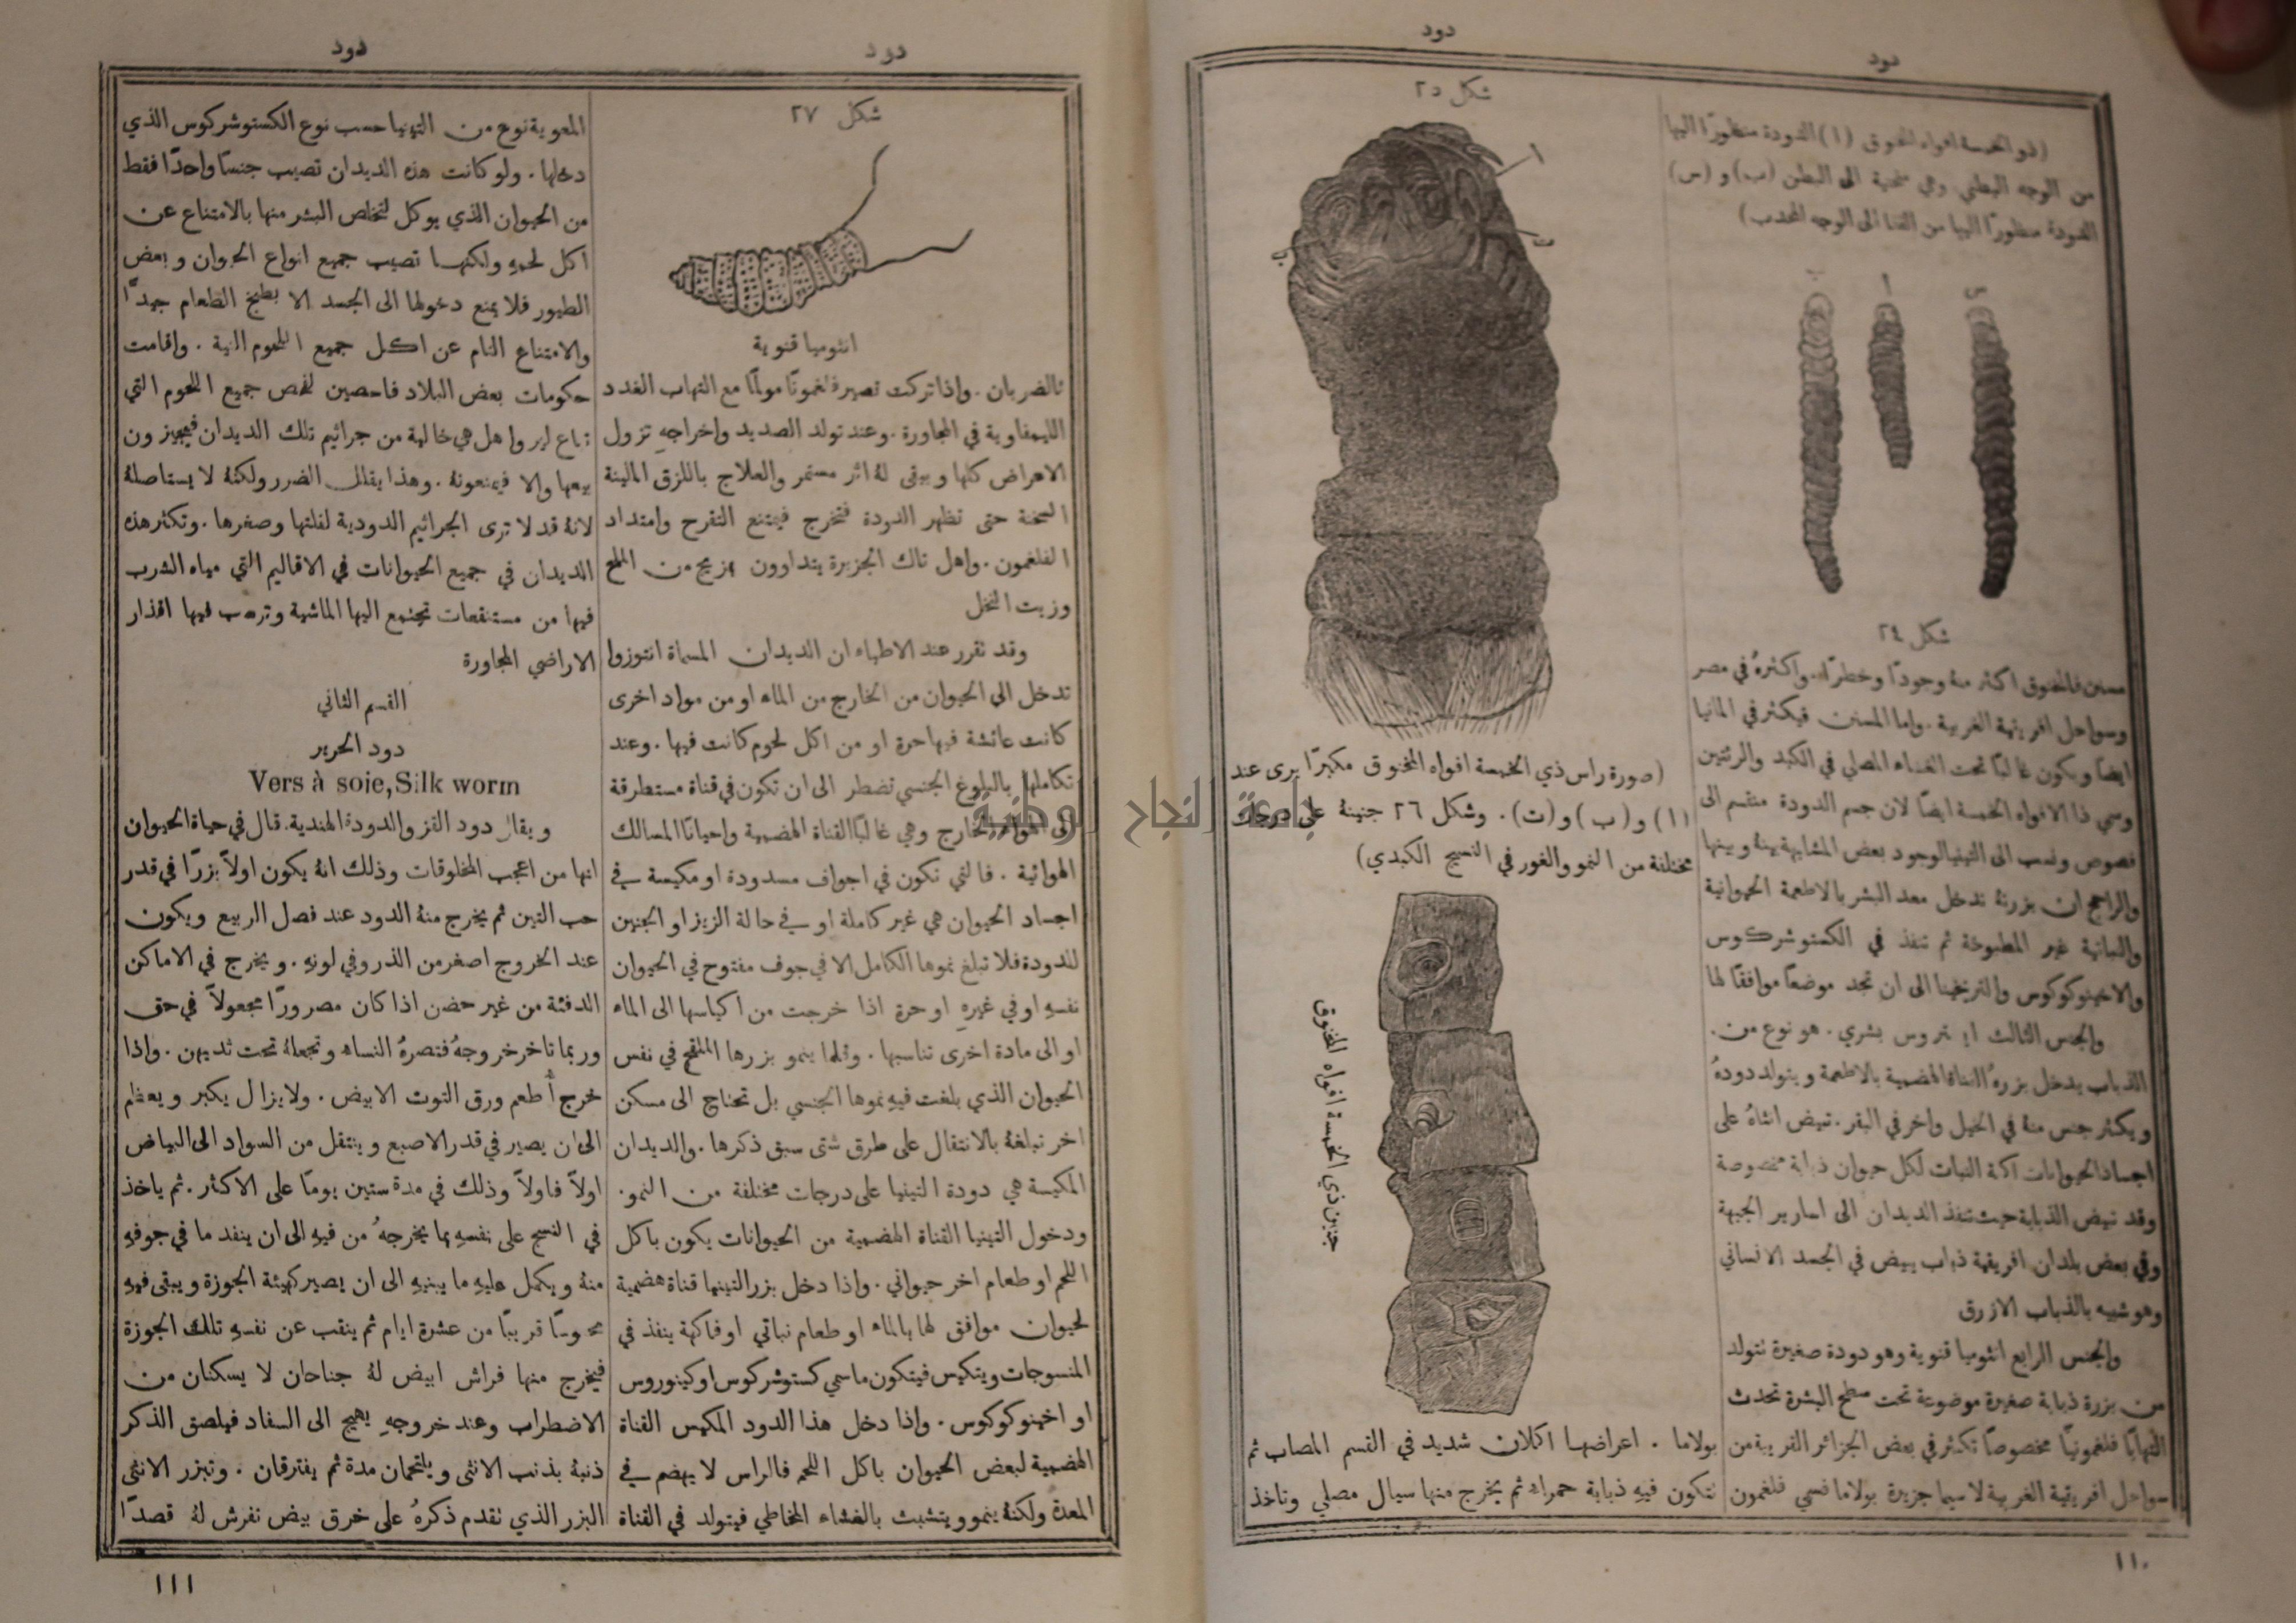 دود
دود
(ذو الخمسة افواه المخنوق (ا) الدودة منظورًا اليها
من الوجه البطني وهي منحنية الى البطن (ب) و (س)
الدودة منظورًا اليها من القفا الى الوجه المحدب)
س
ا
ب
شكل ٢٤
مسنن فالمخنوق اكثر منهُ وجودًا وخطرًا. واكثرهُ في مصر
وسواحل افريقية الغربية. واما المسنن فيكثر في المانيا
ايضًا ويكون غالبًا تحت الغشاء المصلي في الكبد والرئتين
وسمي ذا الافواه الخمسة ايضًا لان جسم الدودة منقسم الى
فصوص ونسب الى التينيا لوجود بعض المشابهة بينهُ وبينها
والراجح ان بزرتهُ تدخل معد البشر بالاطعمة الحيوانية
والنباتية غير المطبوخة ثم تنفذ في الكستوشركوس
والاخينوكوكوس والتريخينا الى ان تجد موضعًا موافقًا لها
والجنس الثالث ايستروس بشري. هو نوع من.
الذباب يدخل بزرهُ القناة الهضمية بالاطعمة ويتولد دودهُ
ويكثر جنس منهُ في الخيل واخر في البقر. تبيض انثاهُ على
اجساد الحيوانات اكلة النبات لكل حيوان ذبابة مخصوصة
وقد تبيض الذبابة حيث تنفذ الديدان الى اسارير الجبهة
وفي بعض بلدان افريقية ذباب يبيض في الجسد الانساني
وهو شبيه بالذباب الازرق
والجنس الرابع انثوميا قنوية وهو دودة صغيرة تتولد
من بزرة ذبابة صغيرة موضوعة تحت سطح البشرة تحدث
التهابًا فلغمونيًا مخصوصًا تكثر في بعض الجزائر القريبة من
سواحل افريقية الغربية لا سيما جزيرة بولاما فسمي فلغمون
شكل ٢٥
ا
ت
ب
(صورة راس ذي الخمسة افواه المخنوق مكبرًا يرى عند
(ا) و (ب) و (ت). وشكل ٢٦ جنينهُ على درجات
مختلفة من النمو والغور في النسيج الكبدي)
جنين ذي الخمسة افواه المخنوق
بولاما. اعراضها اكلان شديد في القسم المصاب ثم
تتكون فيهِ ذبابة حمراء ثم يخرج منها سيال مصلي وتاخذ
١١٠
دود
دود
شكل ٢٧
انثوميا قنوية
بالضربان. واذا تركت تصير فلغمونًا مولمًا مع التهاب الغدد
الليمفاوية في المجاورة. وعند تولد الصديد واخراجهِ تزول
الاعراض كلها ويبقى لهُ اثر مستمر والعلاج باللزق الملينة
السخنة حتى تظهر الدودة فتخرج فيمتنع التقرح وامتداد
الفلغمون. واهل تلك الجزيرة يتداوون بمزيج من الملح
وزيت النخل
وقد تقرر عند الاطباء ان الديدان المسماة انتوزوا
تدخل الى الحيوان من الخارج من الماء او من مواد اخرى
كانت عائشة فيها حرة او من اكل لحوم كانت فيها. وعند
تكاملها بالبلوغ الجنسي تضطر الى ان تكون في قناة مستطرقة
الى الهواء الخارج وهي غالبًا القناة الهضمية واحيانًا المسالك
الهوائية. فالتي تكون في اجواف مسدودة او مكيسة في
اجساد الحيوان هي غير كاملة او في حالة الزيز او الجنين
للدودة فلا تبلغ نموها الكامل الا في جوف مفتوح في الحيوان
نفسهِ او في غيرهِ او حرة اذا خرجت من اكياسها الى الماء
او الى مادة اخرى تناسبها. وقلما ينمو بزرها الملقح في نفس
الحيوان الذي بلغت فيهِ نموها الجنسي بل تحتاج الى مسكن
اخر تبلغهُ بالانتقال على طرق شتى سبق ذكرها. والديدان
المكيسة هي دودة التينيا على درجات مختلفة من النمو.
ودخول التينيا القناة الهضمية من الحيوانات يكون باكل
اللحم او طعام اخر حيواني. واذا دخل بزر التينيا قناة هضمية
لحيوان موافق لها بالماء او طعام نباتي او فاكهة ينفذ في
المنسوجات ويتكيس فيتكون ما سمي كستوشركوس او كينوروس
او اخينوكوكوس. واذا دخل هذا الدود المكيس القناة
الهضمية لبعض الحيوان باكل اللحم فالراس لا يهضم في
المعدة ولكنهُ ينمو ويتشبث بالغشاء المخاطي فيتولد في القناة
المعوية نوع من التينيا حسب نوع الكستوشركوس الذي
دخلها. ولو كانت هذه الديدان تصيب جنسًا واحدًا فقط
من الحيوان الذي يوكل لتخلص البشر منها بالامتناع عن
اكل لحمهِ ولكنهــا تصيب جميع انواع الحيوان وبعض
الطيور فلا يمنع دخولها الى الجسد الا بطبخ الطعام جيدًا
والامتناع التام عن اكل جميع اللحوم النية. واقامت
حكومات بعض البلاد فاحصين لفحص جميع اللحوم التي
تباع ليروا هل هي خالية من جراثيم تلك الديدان فيجيزون
بيعها والا فيمنعونهُ. وهذا يقلل الضرر ولكنهُ لا يستاصلهُ
لانهُ قد لا ترى الجراثيم الدودية لقلتها وصغرها. وتكثر هذه
الديدان في جميع الحيوانات في الاقاليم التي مياه الشرب
فيها من مستنقعات تجتمع اليها الماشية وترسب فيها اقذار
الاراضي المجاورة
القسم الثاني
دود الحرير
Vers à soie, Silk worm
ويقال دود القز والدودة الهندية. قال في حياة الحيوان
انها من اعجب المخلوقات وذلك انهُ يكون اولاً بزرًا في قدر
حب التين ثم يخرج منهُ الدود عند فصل الربيع ويكون
عند الخروج اصغر من الذر وفي لونهِ. ويخرج في الاماكن
الدفئة من غير حضن اذا كان مصرورًا مجعولاً في حق
وربما تاخر خروجهُ فتصرهُ النساء وتجعلهُ تحت ثديهن. واذا
خرج أُطعم ورق التوت الابيض. ولا يزال يكبر ويعظم
الى ان يصير في قدر الاصبع وينتقل من السواد الى البياض
اولاً فاولاً وذلك في مدة ستين يومًا على الاكثر. ثم ياخذ
في النسج على نفسهِ بما يخرجهُ من فيهِ الى ان ينفد ما في جوفهِ
منهُ ويكمل عليهِ ما يبنيهِ الى ان يصير كهيئة الجوزة ويبقى فيهِ
محبوسًا قريبًا من عشرة ايام ثم ينقب عن نفسهِ تلك الجوزة
فيخرج منها فراش ابيض لهُ جناحان لا يسكنان من
الاضطراب وعند خروجهِ يهيج الى السفاد فيلصق الذكر
ذنبهُ بذنب الانثى ويلتحمان مدة ثم يفترقان. وتبزر الانثى
البزر الذي تقدم ذكرهُ على خرق بيض تفرش لهُ قصدًا
١١١
جامعة النجاح الوطنية